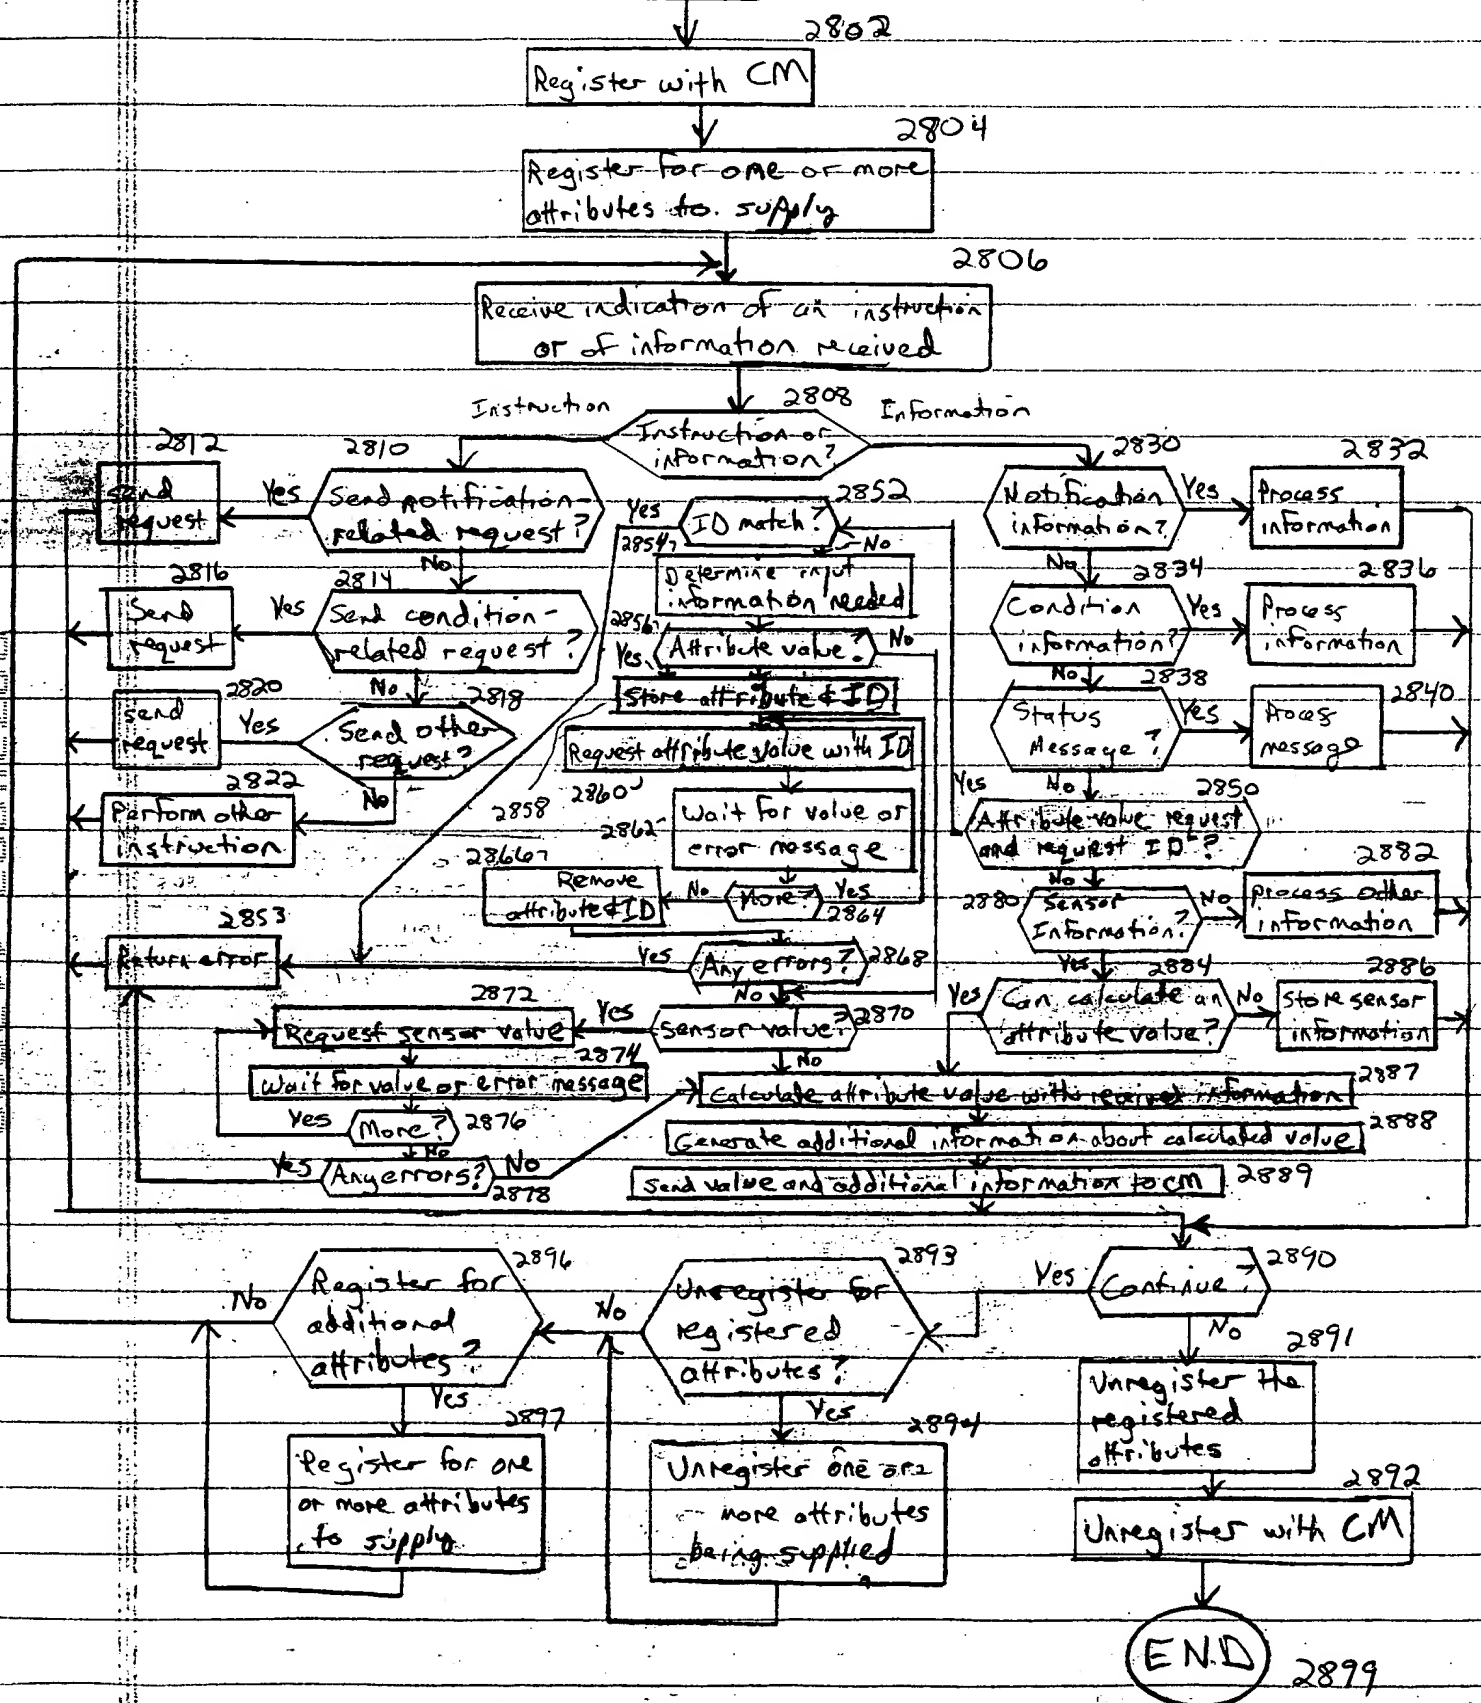 2802
Register with CM
2804
Register for one or more
attributes to supply
2806
Receive indication of an instruction
or of information received
2808
Instruction
Information
Instruction or
information?
2812
Send
request
Yes
2810
Send notification-
related request?
No
2816
Send
request
Yes
2814
Send condition-
related request?
No
2820
send
request
Yes
2818
Send other
request?
No
2822
Perform other
instruction
2852
Yes
ID match?
No
2854
Determine input
information needed
2856
Attribute value?
No
Yes
Store attribute & ID
2858
Request attribute value with ID
2860
2862
Wait for value or
error message
2866
Remove
attribute & ID
No
More?
Yes
2864
2853
Return error
Yes
Any errors?
2868
No
2872
Request sensor value
Yes
Sensor value?
2870
No
2874
Wait for value or error message
Yes
More?
2876
No
Yes
Any errors?
No
2878
2830
Notification
information?
Yes
2832
Process
information
No
2834
Condition
information?
Yes
2836
Process
information
No
2838
Status
Message?
Yes
2840
Process
message
No
2850
Yes
Attribute value request
and request ID?
No
2880
Sensor
Information?
No
2882
Process other
information
Yes
2884
Yes
Can calculate an
attribute value?
No
2886
Store sensor
information
2887
Calculate attribute value with received information
2888
Generate additional information about calculated value
Send value and additional information to CM
2889
2890
Yes
Continue?
No
2891
Unregister the
registered
attributes
2892
Unregister with CM
END
2899
2893
Unregister for
registered
attributes?
No
Yes
2894
Unregister one or
more attributes
being supplied
2896
Register for
additional
attributes?
No
Yes
2897
Register for one
or more attributes
to supply